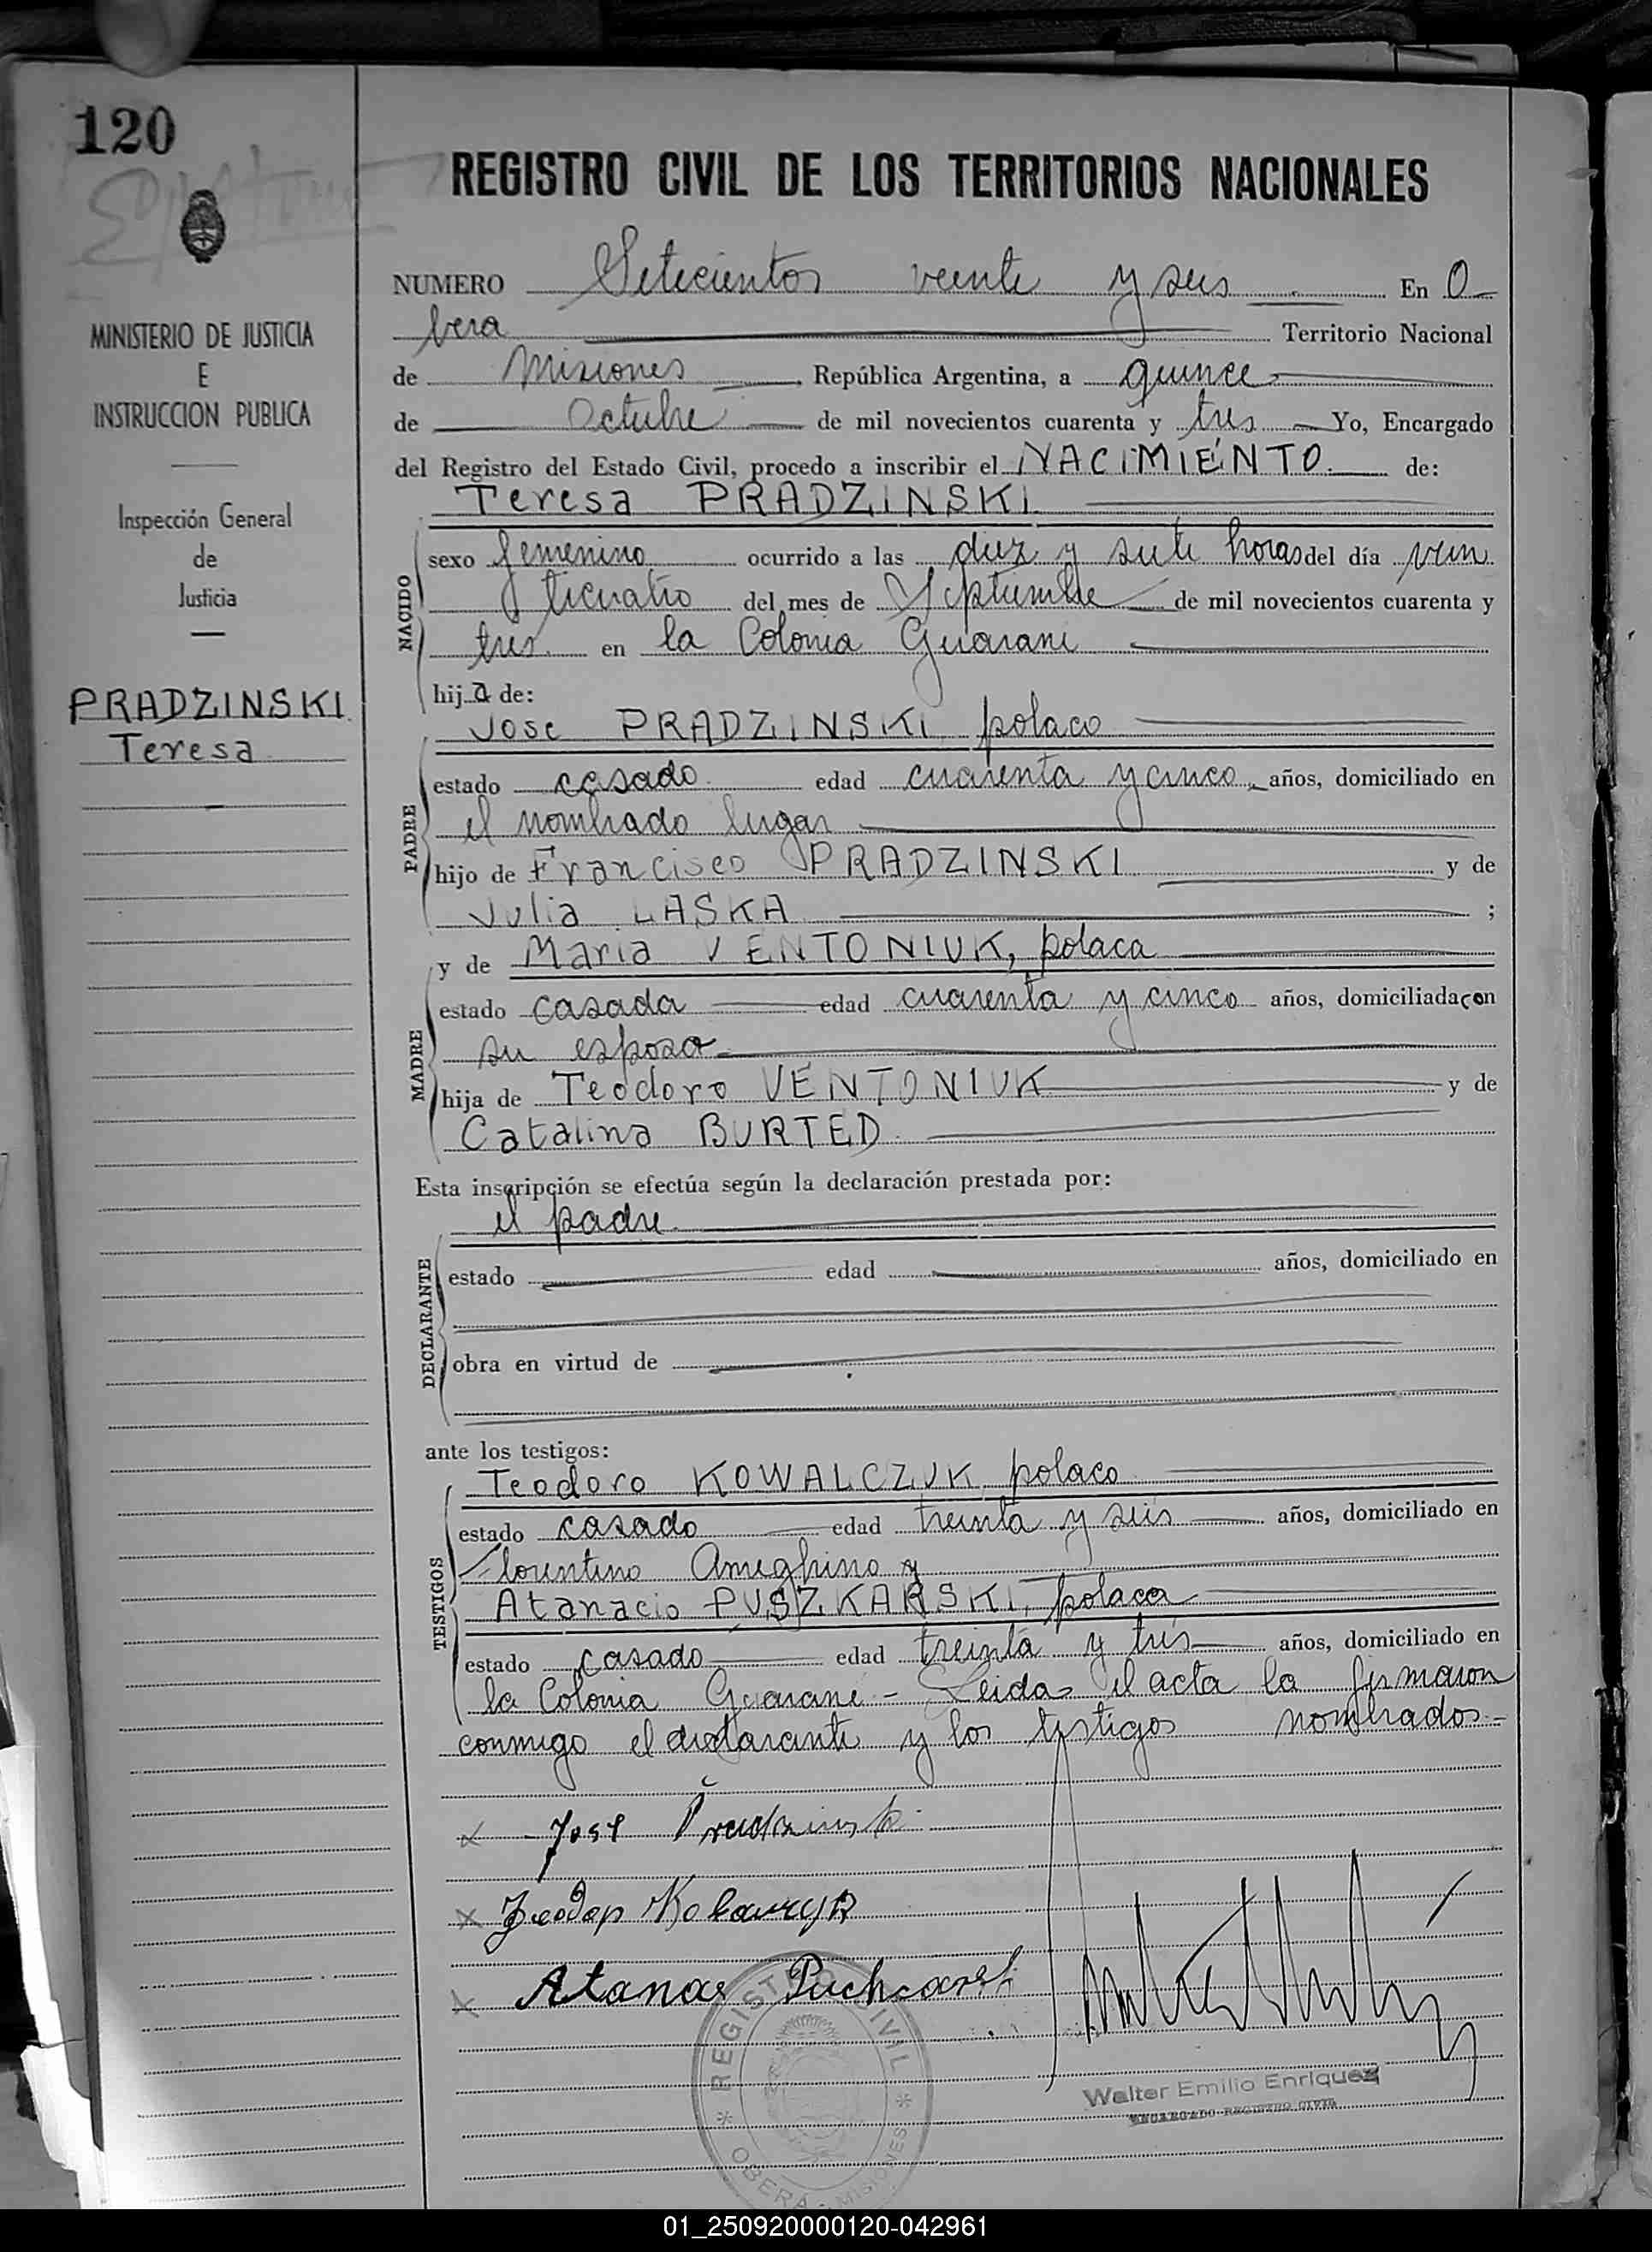 120
REGISTRO CIVIL DE LOS TERRITORIOS NACIONALES
MINISTERIO DE JUSTICIA
E
INSTRUCCION PUBLICA
Inspección General
de
Justicia
PRADZINSKI
Teresa
NUMERO Setecientos veinte y seis En O
bera Territorio Nacional
de Misiones, República Argentina, a quince
de Octubre de mil novecientos cuarenta y tres Yo, Encargado
del Registro del Estado Civil, procedo a inscribir el NACIMIENTO de:
Teresa PRADZINSKI
NACIDO
sexo femenino ocurrido a las diez y siete horas del día vein
ticuatro del mes de Septiembre de mil novecientos cuarenta y
tres en la Colonia Guarani
hija de:
Jose PRADZINSKI polaco
PADRE
estado casado edad cuarenta y cinco años, domiciliado en
el nombrado lugar
hijo de Francisco PRADZINSKI y de
Julia LASKA ;
y de Maria VENTONIUK, polaca
MADRE
estado casada edad cuarenta y cinco años, domiciliada con
su esposo
hija de Teodoro VENTONIUK y de
Catalina BURTED
Esta inscripción se efectúa según la declaración prestada por:
el padre
DECLARANTE
estado edad años, domiciliado en
obra en virtud de
ante los testigos:
Teodoro KOWALCZUK polaco
TESTIGOS
estado casado edad treinta y seis años, domiciliado en
Florentino Ameghino y
Atanacio PUSZKARSKI, polaco
estado casado edad treinta y tres años, domiciliado en
la Colonia Guarani - Leida el acta la firmaron
conmigo el declarante y los testigos nombrados -
Jose Pradzinski
Atanas Puchcarski
REGISTRO CIVIL
OBERA - MISIONES
Walter Emilio Enriquez
ENCARGADO REGISTRO CIVIL
01_250920000120-042961